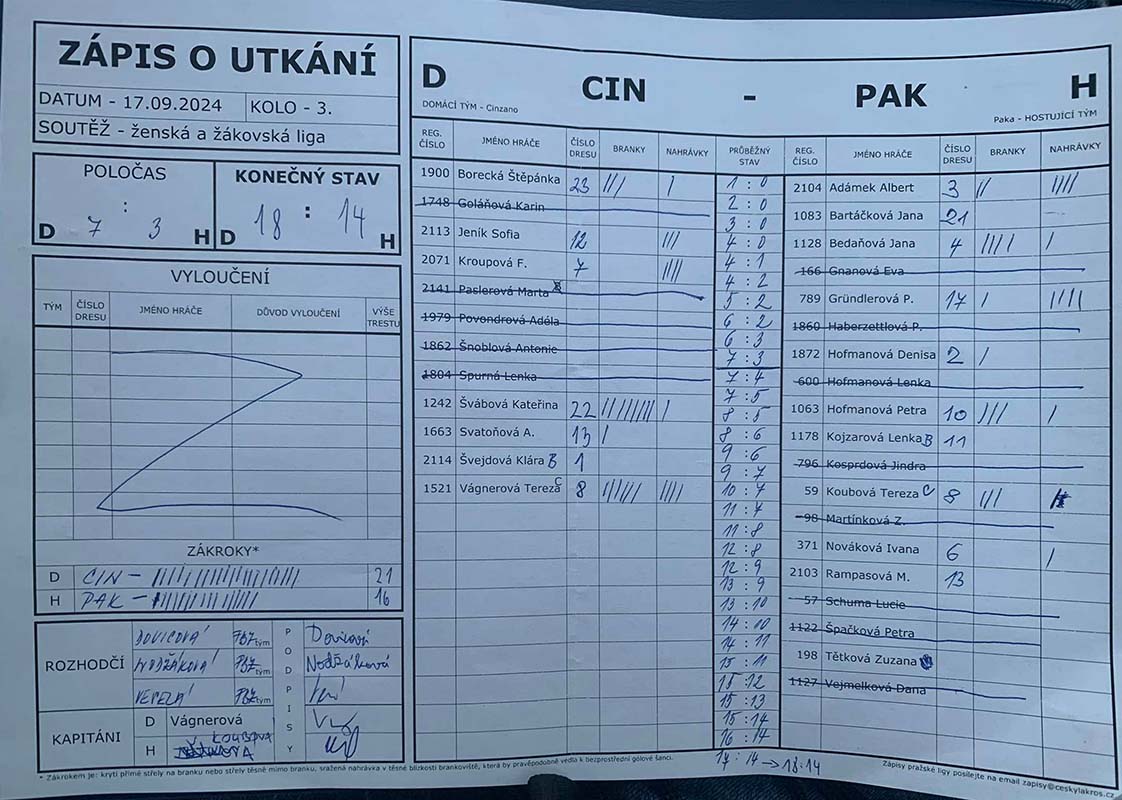 ZÁPIS O UTKÁNÍ
DATUM - 17.09.2024 KOLO - 3.
SOUTĚŽ - ženská a žákovská liga
POLOČAS
:
D 7 3 H
KONEČNÝ STAV
18 : 14
D H
VYLOUČENÍ
TÝM ČÍSLO DRESU JMÉNO HRÁČE DŮVOD VYLOUČENÍ VÝŠE TRESTU
ZÁKROKY*
D CIN - 21
H PAK - 16
ROZHODČÍ
DOVICOVÁ PBZ tým Dovicová
PBZ tým
VESELÁ PBZ tým
PODPISY
KAPITÁNI
D Vágnerová
H KOUBOVÁ
D CIN - PAK H
DOMÁCÍ TÝM - Cinzano Paka - HOSTUJÍCÍ TÝM
REG. ČÍSLO JMÉNO HRÁČE ČÍSLO DRESU BRANKY NAHRÁVKY
1900 Borecká Štěpánka 23 /// /
1748 Goláňová Karin
2113 Jeník Sofia 12 ///
2071 Kroupová F. 7 ////
2141 Paslerová Marta
1979 Povondrová Adéla
1862 Šnoblová Antonie
1804 Spurná Lenka
1242 Švábová Kateřina 22 //////// /
1663 Svatoňová A. 13 /
2114 Švejdová Klára B 1
1521 Vágnerová Tereza C 8 ////// ////
PRŮBĚŽNÝ STAV
1 : 0
2 : 0
3 : 0
4 : 0
4 : 1
4 : 2
5 : 2
6 : 2
6 : 3
7 : 3
7 : 4
7 : 5
8 : 5
8 : 6
9 : 6
9 : 7
10 : 7
11 : 7
11 : 8
12 : 8
12 : 9
13 : 9
13 : 10
14 : 10
14 : 11
15 : 11
15 : 12
15 : 13
15 : 14
16 : 14
17 : 14 → 18 : 14
REG. ČÍSLO JMÉNO HRÁČE ČÍSLO DRESU BRANKY NAHRÁVKY
2104 Adámek Albert 3 // ////
1083 Bartáčková Jana 21
1128 Bedaňová Jana 4 //// /
166 Gnanová Eva
789 Gründlerová P. 17 / ////
1860 Haberzettlová P.
1872 Hofmanová Denisa 2 /
600 Hofmanová Lenka
1063 Hofmanová Petra 10 /// /
1178 Kojzarová Lenka B 11
796 Kosprdová Jindra
59 Koubová Tereza C 8 ///
98 Martínková Z.
371 Nováková Ivana 6 /
2103 Rampasová M. 13
57 Schuma Lucie
1122 Špačková Petra
198 Tětková Zuzana
1127 Vejmelková Dana
* Zákrokem je: krytí přímé střely na branku nebo střely těsně mimo branku, sražená nahrávka v těsné blízkosti brankoviště, která by pravěpodobně vedla k bezprostřední gólové šanci.
Zápisy pražské ligy posílejte na email zapisy@ceskylakros.cz